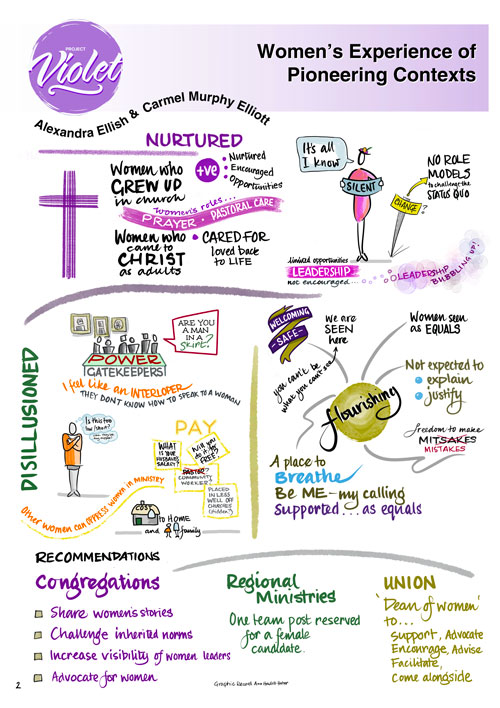 PROJECT
Violet
Women's Experience of
Pioneering Contexts
Alexandra Ellish & Carmel Murphy Elliott
NURTURED
Women who
GREW UP
in church
+ve
• Nurtured
• Encouraged
• Opportunities
women's roles...
PRAYER • PASTORAL CARE
Women who
came to
CHRIST
as adults
• CARED FOR
loved back
to LIFE
It's all
I know
SILENT
CHANGE
NO ROLE
MODELS
to challenge the
STATUS QUO
limited opportunities
LEADERSHIP
not encouraged...
LEADERSHIP
BUBBLING UP!
DISILLUSIONED
POWER
GATEKEEPERS
ARE YOU
A MAN
IN A
skirt?
I feel like an INTERLOPER
THEY DON'T KNOW HOW TO SPEAK TO A WOMAN
Is this too
low/short?
PAY
WHAT
IS YOUR
HUSBAND'S
SALARY?
Will you
do it for
FREE?
PASTOR?
COMMUNITY
WORKER.
PLACED
IN LESS
WELL OFF
CHURCHES
Other women can OPPRESS women in MINISTRY
to HOME
and family
WELCOMING
- SAFE -
we are
SEEN
here
you can't be
what you can't see
Women seen
as EQUALS
flourishing
Not expected to
explain
justify
freedom to make
MITSAKES
MISTAKES
A place to
Breathe
Be ME - my calling
Supported... as equals
RECOMMENDATIONS
Congregations
Share women's stories
Challenge inherited norms
Increase visibility of women leaders
Advocate for women
Regional
Ministries
One team post reserved
for a female
candidate.
UNION
'Dean of women'
to...
Support, Advocate
Encourage, Advise
Facilitate,
Come alongside
2
Graphic Record: